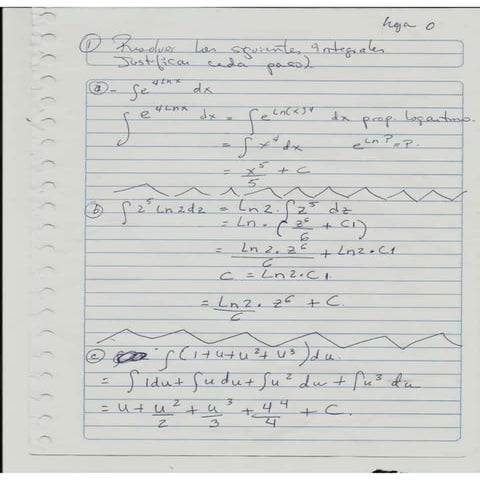 Hoja 0
① Resolver los siguientes integrales
Justificar cada paso).
ⓐ- ∫e^{4Lnx} dx
∫ e^{4Lnx} dx = ∫ e^{Ln(x)^4} dx prop. logaritmo.
= ∫ x^4 dx e^{Ln P} = P.
= x^5/5 + C
ⓑ ∫ z^5 Ln2 dz = Ln2 · ∫ z^5 dz
= Ln · (z^6/6 + C1)
= Ln2 · z^6/6 + Ln2 · C1
C = Ln2 · C1
= Ln2/6 · z^6 + C.
ⓒ ∫ (1+u+u^2+u^3) du.
= ∫ 1du + ∫ u du + ∫ u^2 du + ∫ u^3 du
= u + u^2/2 + u^3/3 + 4^4/4 + C.